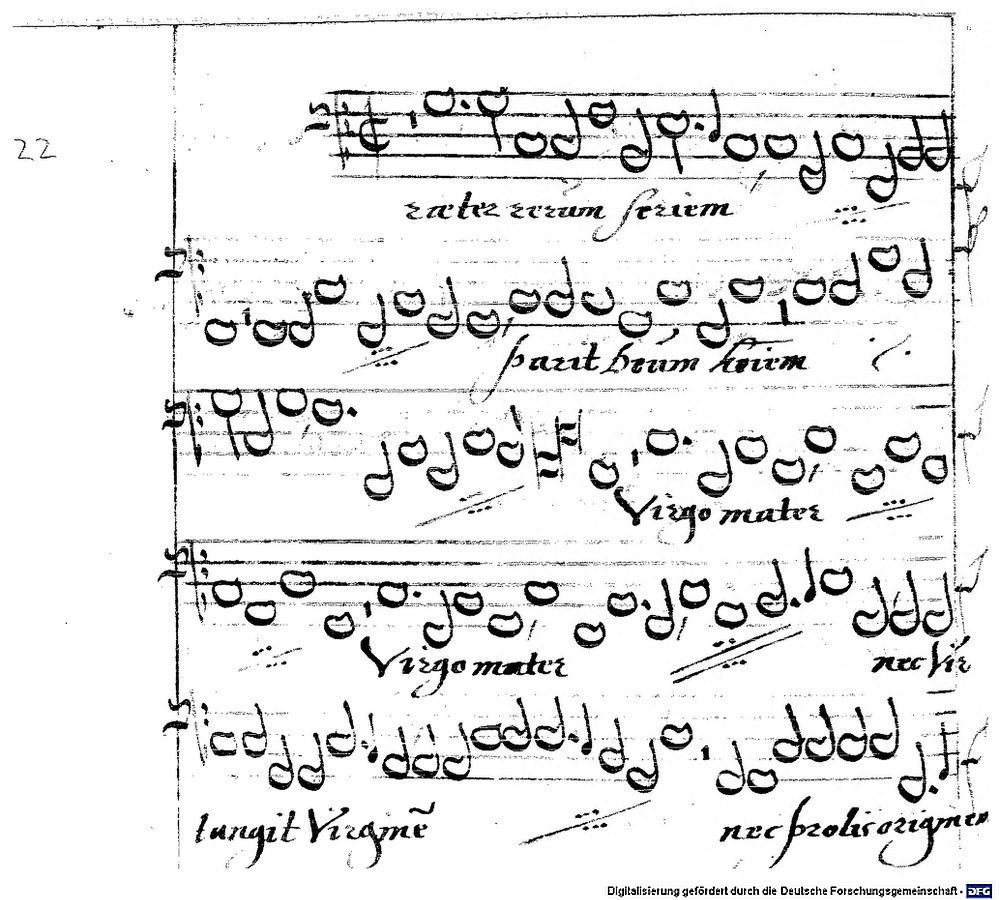 22
ræter rerum seriem
parit deum
Virgo mater
Virgo mater nec Vir
tangit Virginẽ nec prolis origine
Digitalisierung gefördert durch die Deutsche Forschungsgemeinschaft - DFG